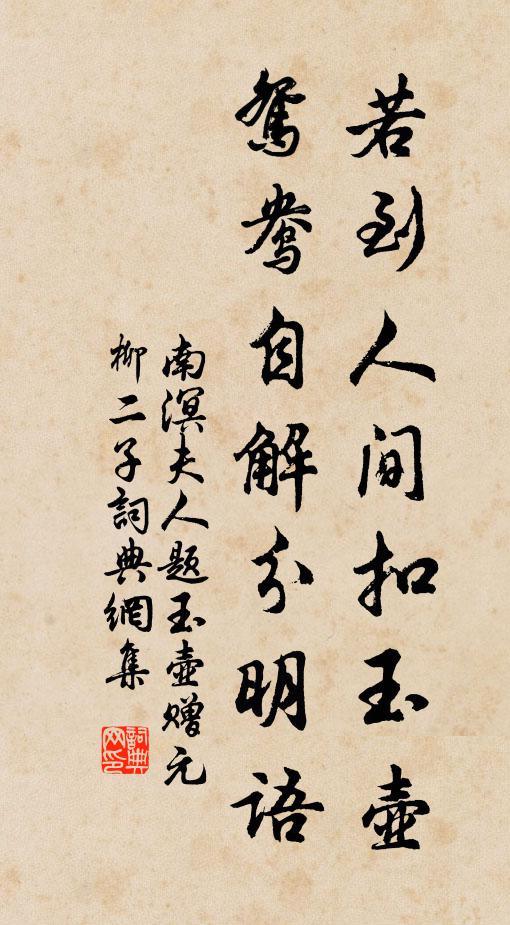 若到人间扣玉壶
鸳鸯自解分明语
南溟夫人题玉壶赠元
柳二子詞典網集
詞典
网印